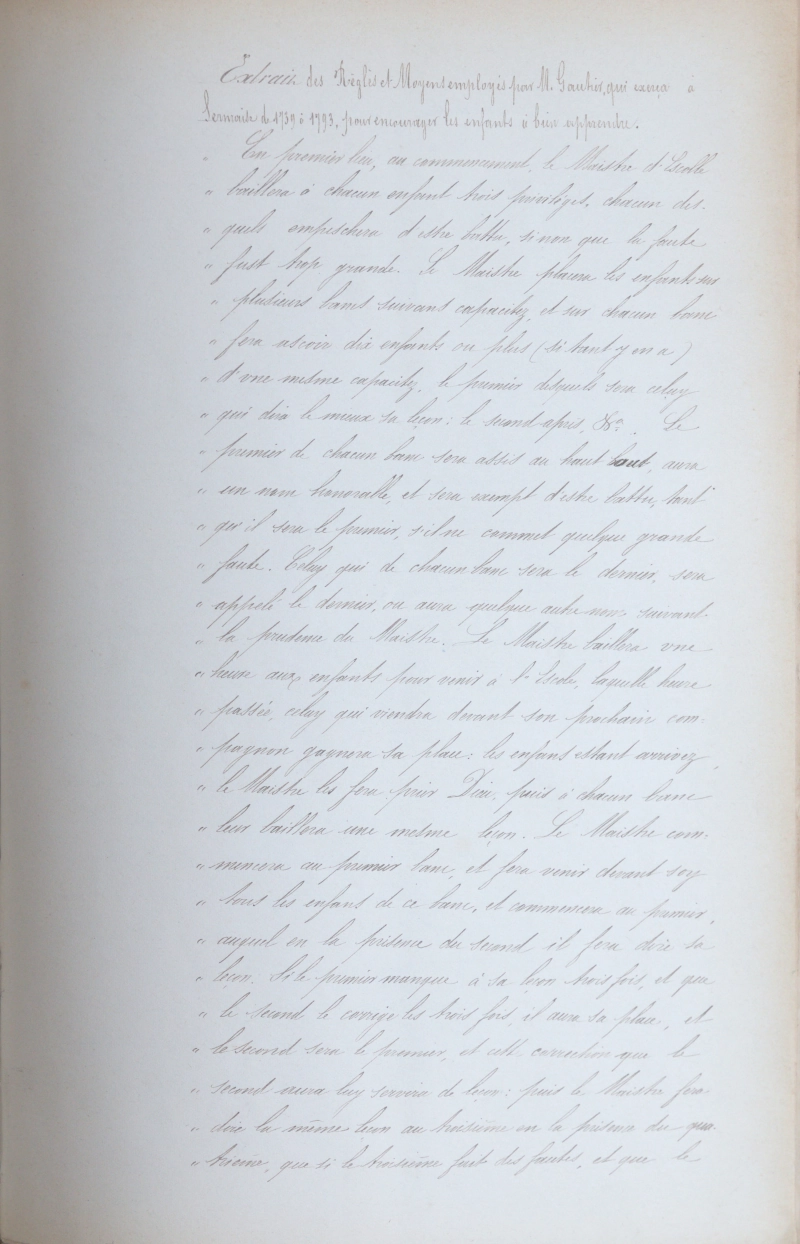 Extrait des Règles et Moyens employés par M. Gautier, qui exerça à
Sermaise de 1759 à 1793, pour encourager les enfants à bien apprendre.
" En premier lieu, au commencement, le Maistre d'Escolle
" baillera à chacun enfant trois privilèges, chacun des-
" quels empeschera d'estre battu, sinon que la faute
" fust trop grande. Le Maistre placera les enfants sur
" plusieurs bancs suivant capacitez, et sur chacun banc
" fera asseoir dix enfants ou plus (si tant y en a)
" d'vne mesme capacity, le premier desquels sera celuy
" qui dira le mieux sa leçon: le second après, &c. Le
" premier de chacun banc sera assis au haut bout, aura
" un nom honorable, et sera exempt d'estre battu, tant
" qu'il sera le premier, s'il ne commet quelque grande
" faute. Celuy qui de chacun banc sera le dernier, sera
" appelé le dernier, ou aura quelque autre nom suivant
" la prudence du Maistre. Le Maistre baillera vne
" heure aux enfants pour venir à l'Escole, laquelle heure
" passée, celuy qui viendra devant son prochain com-
" pagnon gagnera sa place: les enfans estant arrivez,
" le Maistre les fera prier Dieu, puis à chacun banc
" leur baillera une mesme leçon. Le Maistre com-
" mencera au premier banc, et fera venir devant soy
" tous les enfans de ce banc, et commencera au premier,
" auquel en la présence du second il fera dire sa
" leçon. Si le premier manque à sa leçon trois fois, et que
" le second le corrige les trois fois, il aura sa place, et
" le second sera le premier, et cette correction que le
" second aura luy servira de leçon: puis le Maistre fera
" dire la même leçon au troisième en la présence du qua-
" trième, que si le troisième fait des fautes, et que le